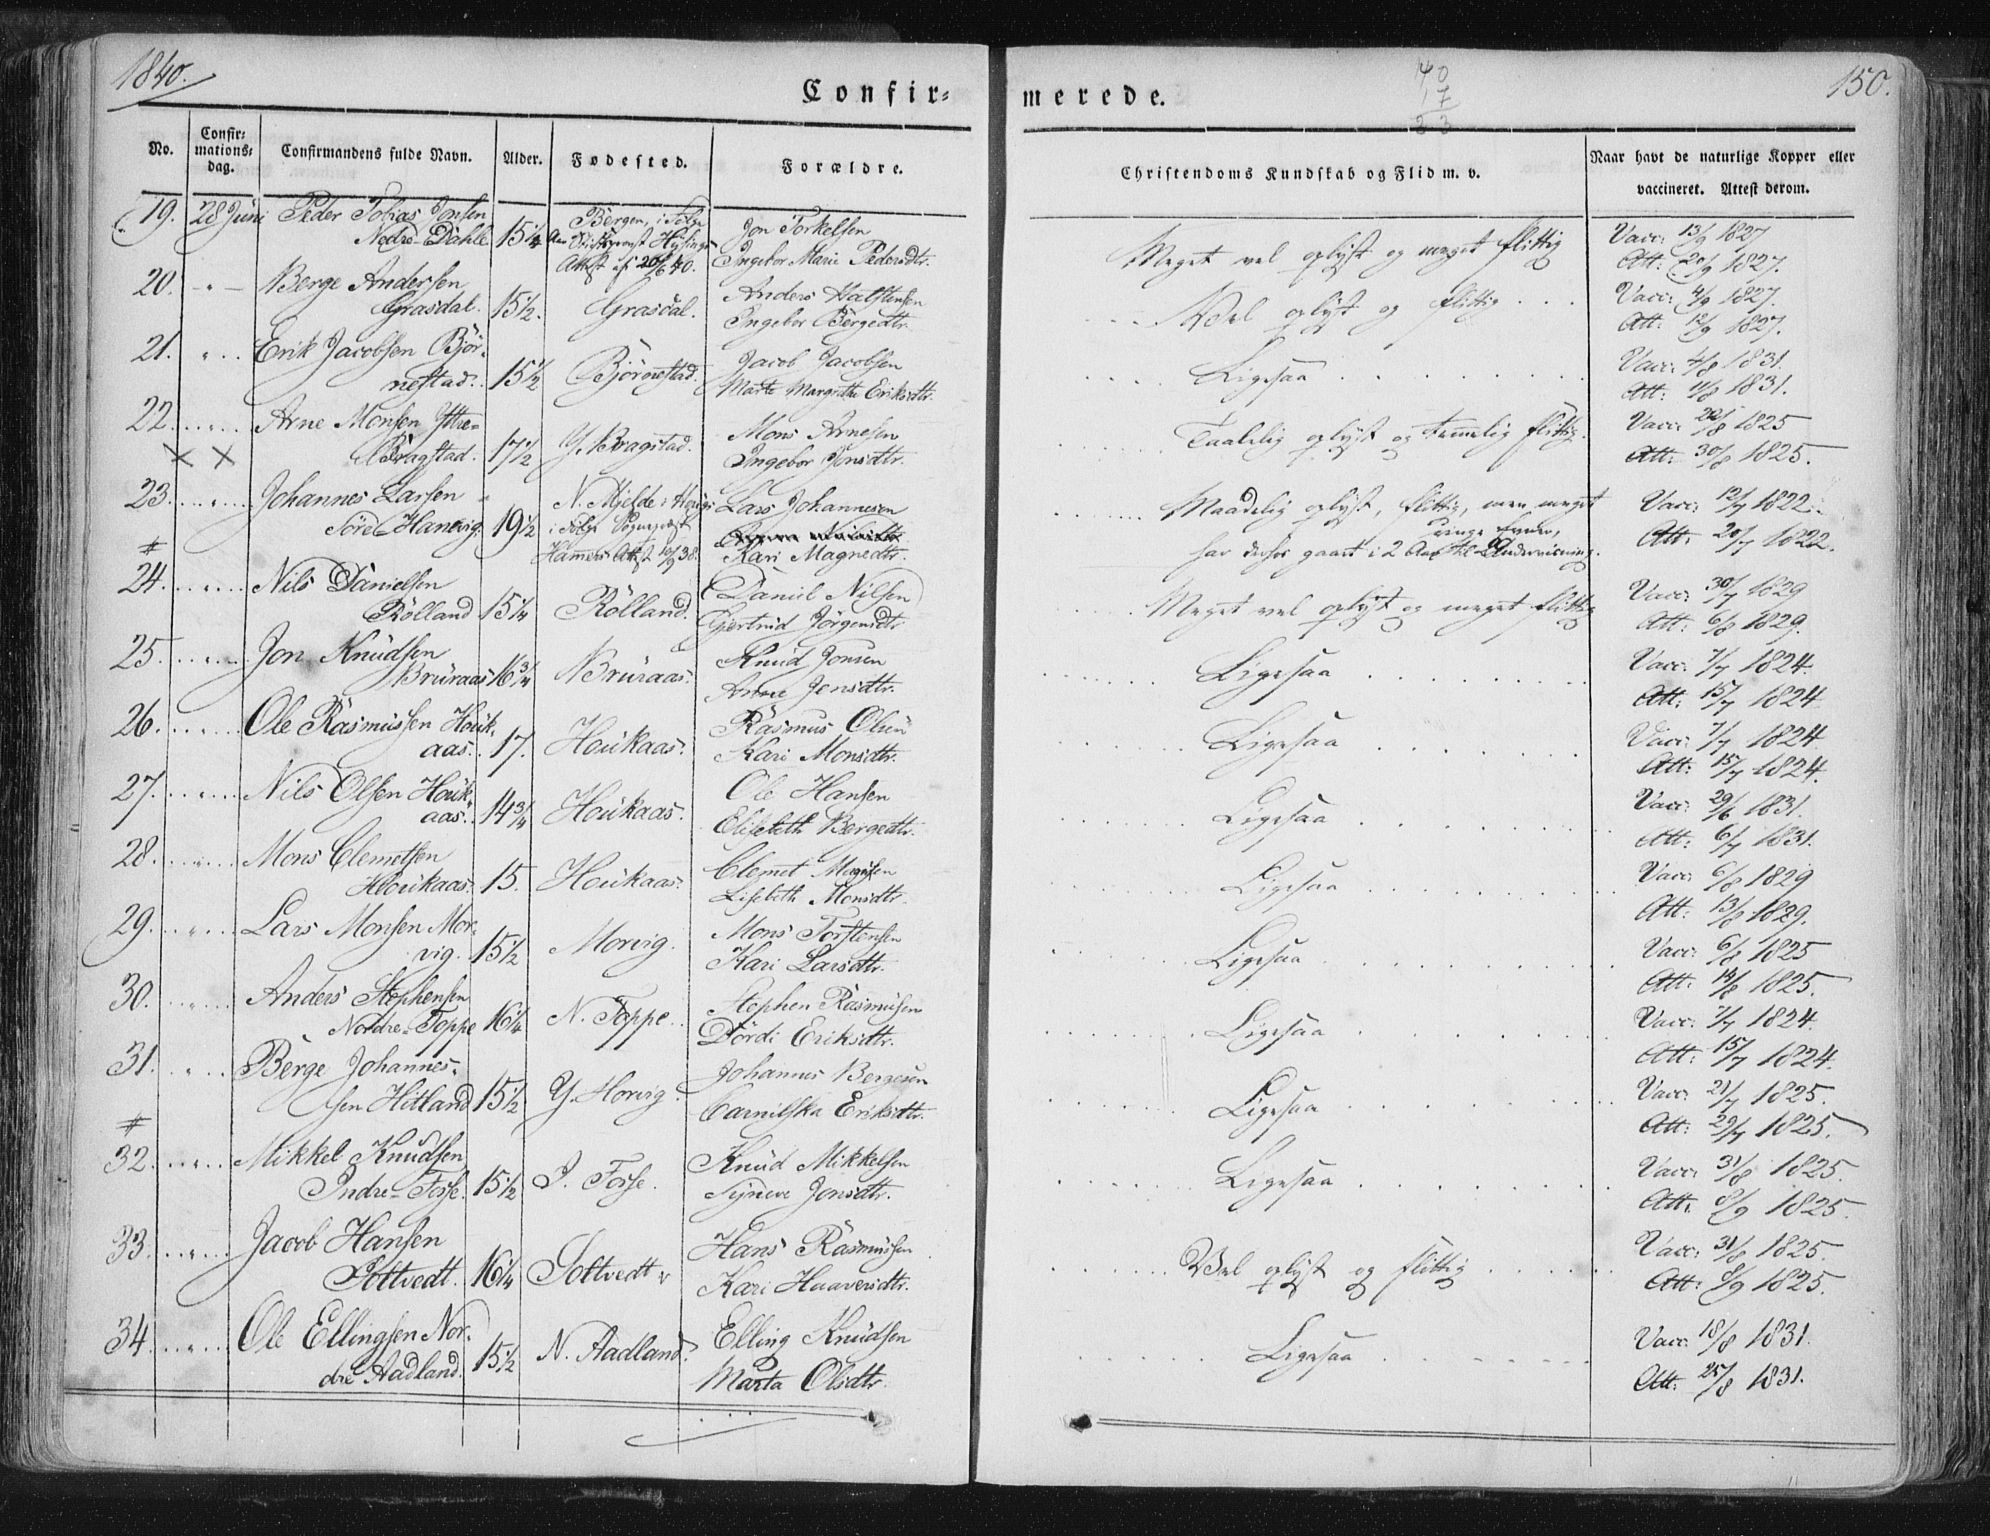 1840.
150.
Confir=
merede.
40
17
23
No.
Confir=
mations=
dag.
Confirmandens fulde Navn.
Alder.
Fødested.
Forældre.
Christendoms Kundskab og Flid m. v.
Naar havt de naturlige Kopper eller
vaccineret. Attest derom.
19. 28 Juni Peder Tobias Jonsen
Nedre-Dahle 15 1/4
Bergen, i Følge
Attest af 20/6 40.
Jon Torkelsen
Ingebor Marie Pedersdtr.
Meget vel oplyst og meget flittig
Vacc: 13/9 1827
Att: 20/9 1827.
20. - " - Berge Andersen
Grasdal. 15 1/2. Grasdal.
Anders Halstensen
Ingebor Bergedtr.
Vel oplyst og flittig
Vacc: 4/9 1827.
Att: 12/9 1827.
21. " Erik Jacobsen Bjør-
nestad. 15 1/2 Bjørnestad.
Jacob Jacobsen
Marte Margrethe Eriksdtr.
Ligesaa
Vacc: 4/8 1831.
Att: 11/8 1831.
22. " Arne Monsen Yttre-
Bragstad. 17 1/2 Y. Bragstad.
Mons Arnesen
Ingebor Jonsdtr.
Taalelig oplyst og temmelig flittig.
Vacc: 22/8 1825
Att: 30/8 1825.
× ×
23. " Johannes Larsen
Søre Hanevig. 19 1/2
N. Mjelde i Hougs
i Følge Sognepræst
Hammers Attst 10/9 38.
Lars Johannesen
Kari Magnedtr.
Maadelig oplyst, flittig, men meget
ringe Evner,
har derhos gaaet i 2 Aar til Underviisning.
Vacc: 12/7 1822.
Att: 20/7 1822.
#
24. " Nils Danielsen
Rölland 15 1/4 Rölland.
Daniel Nilsen
Gjertrud Jörgensdtr
Meget vel oplyst og meget flittig
Vacc: 30/7 1829
Att: 6/8 1829.
25. " Jon Knudsen
Bruraas 16 3/4 Bruraas.
Knud Jonsen
Anne Jensdtr.
Ligesaa
Vacc: 7/7 1824.
Att: 15/7 1824
26. " Ole Rasmussen Houk-
aas. 17. Houkaas.
Rasmus Olsen
Kari Monsdtr.
Ligesaa
Vacc: 7/7 1824
Att: 15/7 1824.
27. " Nils Olsen Houk-
aas. 14 3/4 Houkaas.
Ole Hansen
Elisebeth Bergedtr.
Ligesaa
Vacc: 29/6 1831.
Att: 6/7 1831.
28. " Mons Clemetsen
Houkaas. 15. Houkaas.
Clemet Magnesen
Lisebeth Monsdtr.
Ligesaa
Vacc: 6/8 1829
Att: 13/8 1829.
29. " Lars Monsen Mor-
vig. 15 1/2 Morvig.
Mons Torstensen
Kari Larsdtr.
Ligesaa
Vacc: 6/8 1825
Att: 14/8 1825.
30. " Anders Stephensen
Nordre-Toppe 16 1/4 N. Toppe.
Stephen Rasmussen
Dördi Eriksdtr.
Ligesaa
Vacc: 7/7 1824.
Att: 15/7 1824.
31. " Berge Johannes-
sen Hitland 15 1/2 Y. Horvig.
Johannes Bergesen
Carnilska Eriksdtr.
Ligesaa
Vacc: 21/7 1825.
Att: 29/7 1825.
#
32. " Mikkel Knudsen
Indre-Fosse. 15 1/2 I. Fosse.
Knud Mikkelsen
Syneve Jonsdtr.
Ligesaa
Vacc: 31/8 1825.
Att: 8/9 1825.
33. " Jacob Hansen
Soltvedt. 16 1/4 Soltvedt
Hans Rasmussen
Kari Haaversdtr.
Vel oplyst og flittig
Vacc: 31/8 1825.
Att: 8/9 1825.
34. " Ole Ellingsen Nor-
dre Aadland. 15 1/2 N. Aadland.
Elling Knudsen
Marta Olsdtr.
Ligesaa
Vacc: 18/8 1831.
Att: 25/8 1831.